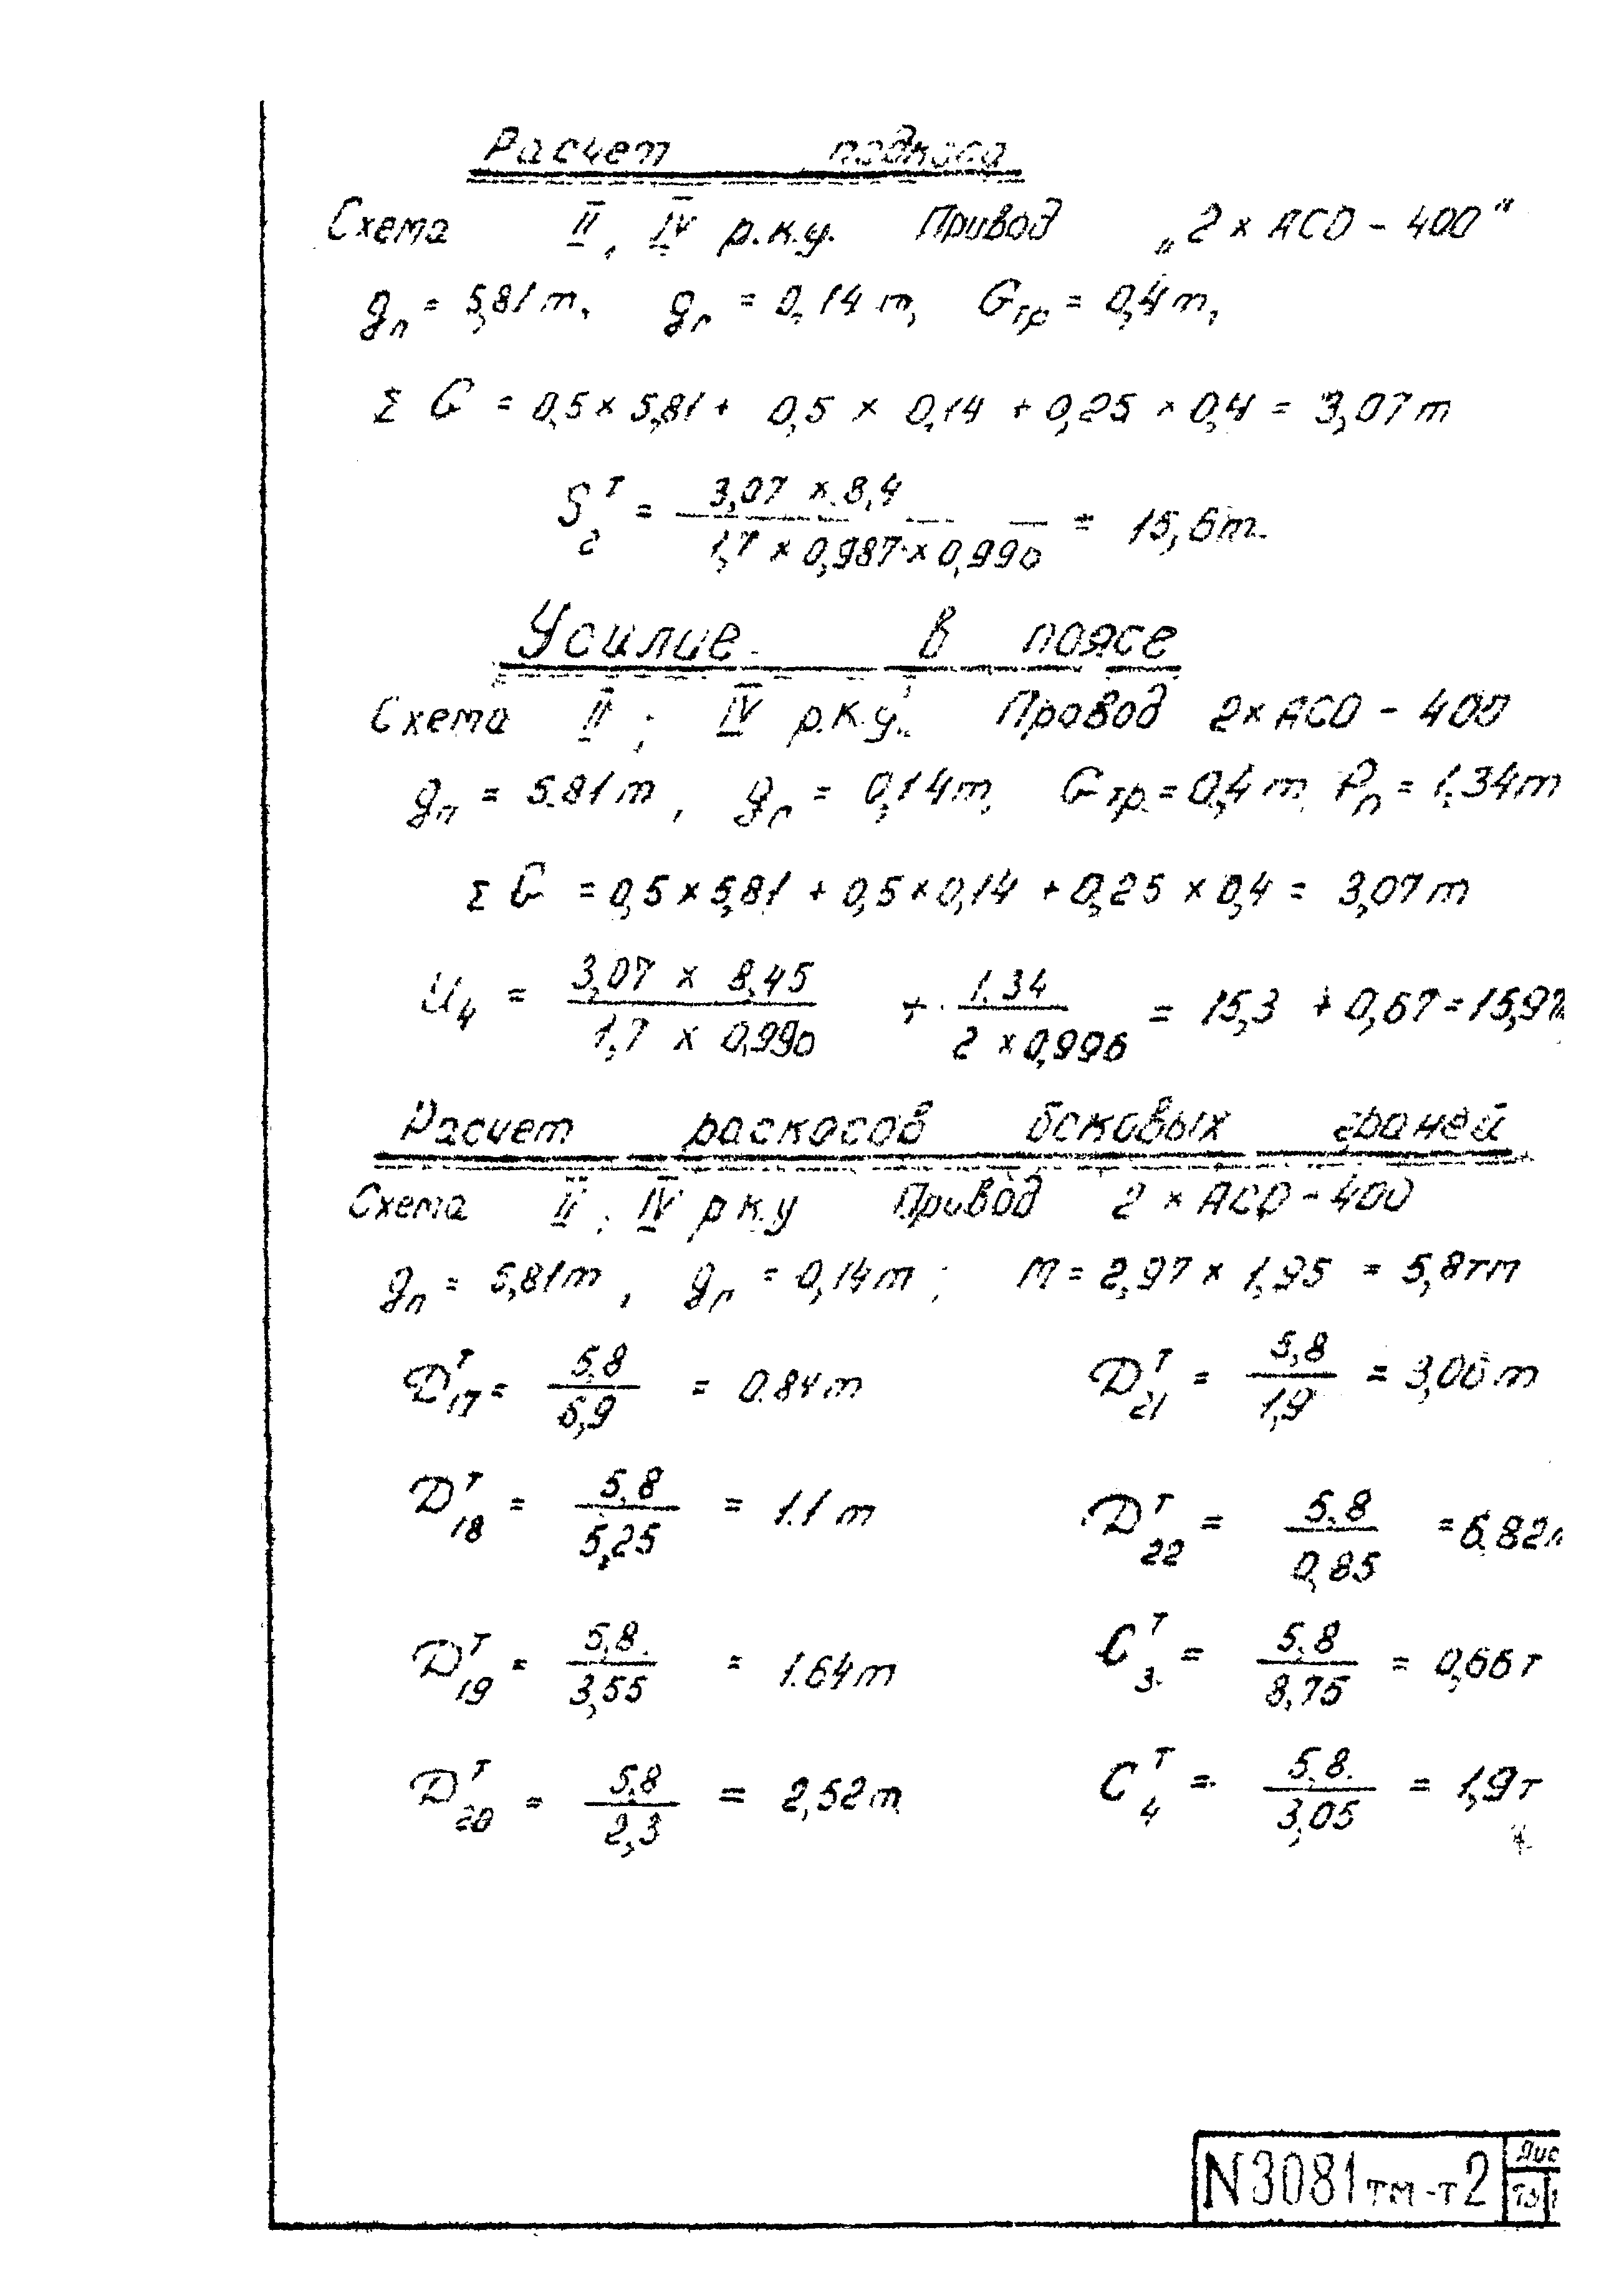 Расчет подкоса
Схема II, IV р.к.у. Привод „2 × АСО - 400"
gп = 5,81т, gг = 0,14т, Gгр = 0,4т,
Σ G = 0,5 × 5,81 + 0,5 × 0,14 + 0,25 × 0,4 = 3,07т
S₂ᵀ = 3,07 × 8,4 / 1,7 × 0,987 × 0,990 = 15,6т.
Усилие в поясе
Схема II; IV р.к.у. Провод 2×АСО - 400
gп = 5.81т, gг = 0,14т, Gгр. = 0,4т Pп = 1.34т
Σ G = 0,5 × 5,81 + 0,5 × 0,14 + 0,25 × 0,4 = 3,07т
U₄ = 3,07 × 8,45 / 1,7 × 0,990 + 1.34 / 2 × 0,996 = 15,3 + 0,67 = 15,97
Расчет раскосов боковых граней
Схема II, IV р к.у Привод 2 × АСО - 400
gп = 5,81т, gг = 0,14т; M = 2,97 × 1,95 = 5,8тм
D₁₇ᵀ = 5,8 / 6,9 = 0.84т D₂₁ᵀ = 5,8 / 1,9 = 3,06т
D₁₈ᵀ = 5,8 / 5,25 = 1.1т D₂₂ᵀ = 5.8 / 0,85 = 6.82
D₁₉ᵀ = 5,8 / 3,55 = 1.64т C₃ᵀ = 5,8 / 8,75 = 0,66т
D₂₀ᵀ = 5,8 / 2,3 = 2,52т C₄ᵀ = 5,8 / 3,05 = 1,9т
N3081тм-т2 Лис